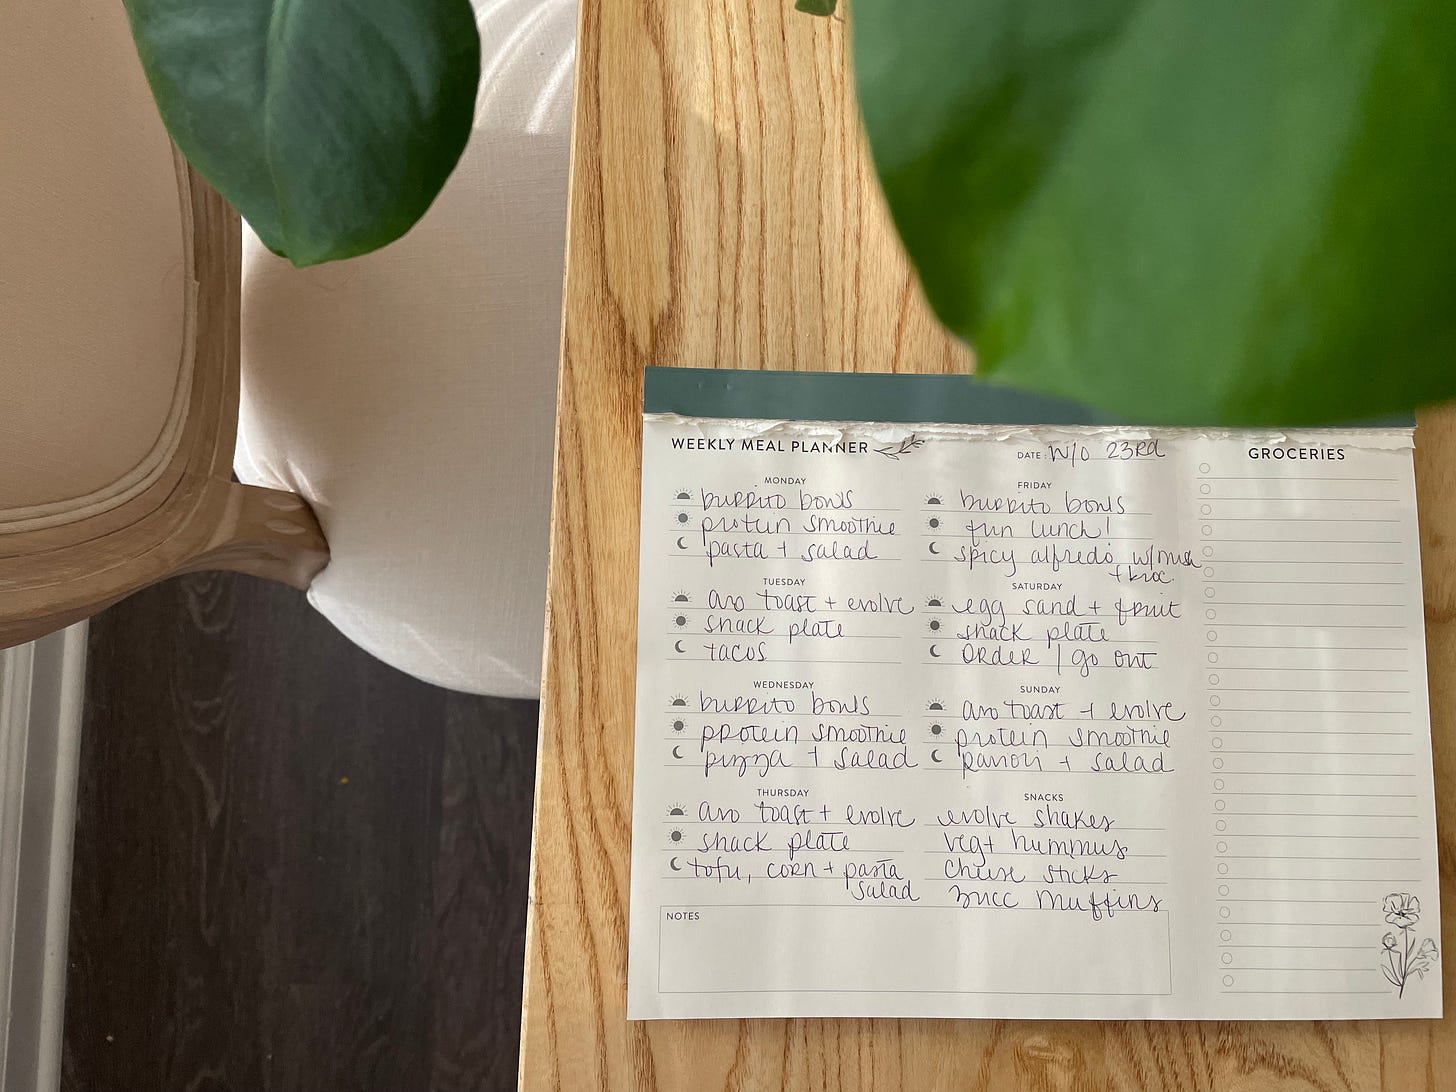 WEEKLY MEAL PLANNER
DATE: W/O 23RD
MONDAY
burrito bowls
protein smoothie
pasta + salad
TUESDAY
avo toast + evolve
snack plate
tacos
WEDNESDAY
burrito bowls
protein smoothie
pizza + salad
THURSDAY
avo toast + evolve
snack plate
tofu, corn + pasta
salad
FRIDAY
burrito bowls
fun lunch!
spicy alfredo w/mush
+ broc.
SATURDAY
egg sand + fruit
snack plate
order / go out
SUNDAY
avo toast + evolve
protein smoothie
+ salad
SNACKS
evolve shakes
veg + hummus
cheese sticks
zucc muffins
NOTES
GROCERIES